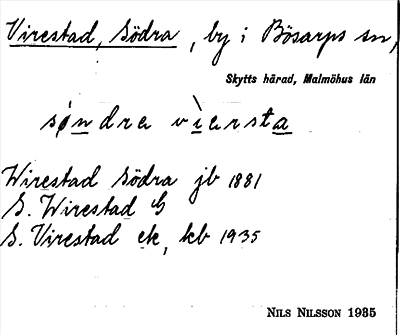 Virestad, Södra, by i Bösarps sn,
Skytts härad, Malmöhus län
søndra vìarsta
Wirestad Södra jb 1881
S. Wirestad G
S. Virestad ek, kb 1935
NILS NILSSON 1935